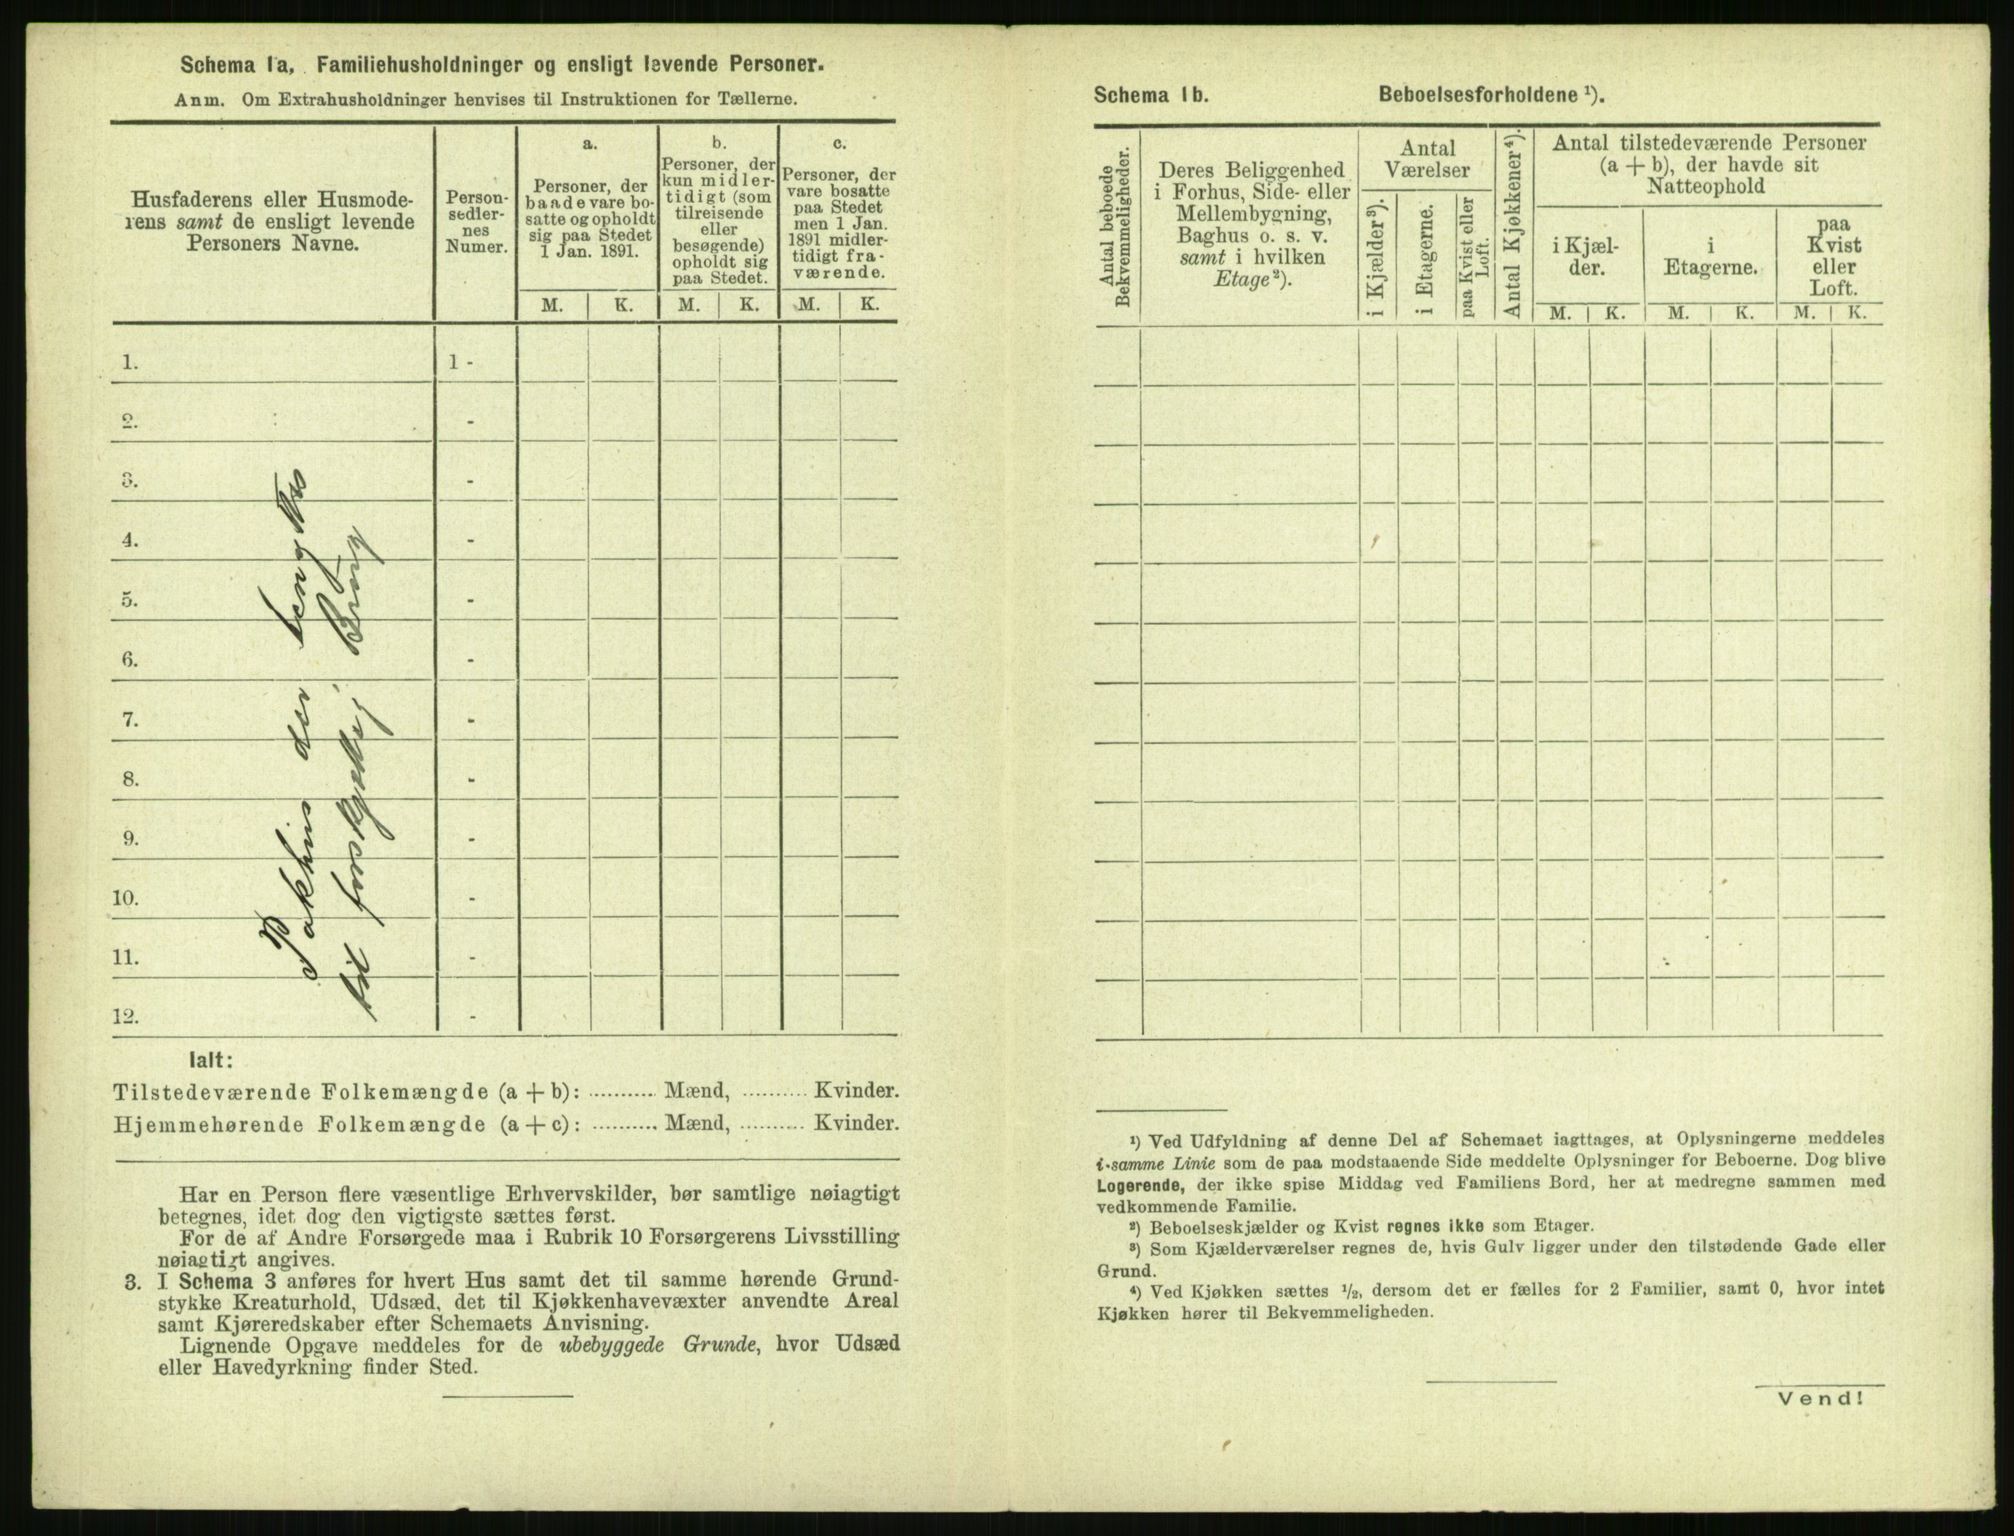 Schema 1a, Familiehusholdninger og ensligt levende Personer.
Anm. Om Extrahusholdninger henvises til Instruktionen for Tællerne.
Husfaderens eller Husmode-
rens samt de ensligt levende
Personers Navne.
Person-
sedler-
nes
Numer.
a.
Personer, der
baade vare bo-
satte og opholdt
sig paa Stedet
1 Jan. 1891.
b.
Personer, der
kun midler-
tidigt (som
tilreisende
eller
besøgende)
opholdt sig
paa Stedet.
c.
Personer, der
vare bosatte
paa Stedet
men 1 Jan.
1891 midler-
tidigt fra-
værende.
M. K. M. K. M. K.
1. 1 -
2. -
3. -
4. -
5. -
6. -
7. -
8. -
9. -
10. -
11. -
12. -
Pakhus der benyttes
til forskjellig Brug
Ialt:
Tilstedeværende Folkemængde (a + b): ........... Mænd, .......... Kvinder.
Hjemmehørende Folkemængde (a + c): .......... Mænd, .......... Kvinder.
Har en Person flere væsentlige Erhvervskilder, bør samtlige nøiagtigt
betegnes, idet dog den vigtigste sættes først.
For de af Andre Forsørgede maa i Rubrik 10 Forsørgerens Livsstilling
nøiagtigt angives.
3. I Schema 3 anføres for hvert Hus samt det til samme hørende Grund-
stykke Kreaturhold, Udsæd, det til Kjøkkenhavevæxter anvendte Areal
samt Kjøreredskaber efter Schemaets Anvisning.
Lignende Opgave meddeles for de ubebyggede Grunde, hvor Udsæd
eller Havedyrkning finder Sted.
Schema 1b. Beboelsesforholdene ¹).
Antal beboede
Bekvemmeligheder.
Deres Beliggenhed
i Forhus, Side- eller
Mellembygning,
Baghus o. s. v.
samt i hvilken
Etage ²).
Antal
Værelser
i Kjælder ³).
i Etagerne.
paa Kvist eller
Loft.
Antal Kjøkkener ⁴).
Antal tilstedeværende Personer
(a + b), der havde sit
Natteophold
i Kjæl-
der.
i
Etagerne.
paa
Kvist
eller
Loft.
M. K. M. K. M. K.
¹) Ved Udfyldning af denne Del af Schemaet iagttages, at Oplysningerne meddeles
i samme Linie som de paa modstaaende Side meddelte Oplysninger for Beboerne. Dog blive
Logerende, der ikke spise Middag ved Familiens Bord, her at medregne sammen med
vedkommende Familie.
²) Beboelseskjælder og Kvist regnes ikke som Etager.
³) Som Kjælderværelser regnes de, hvis Gulv ligger under den tilstødende Gade eller
Grund.
⁴) Ved Kjøkken sættes ½, dersom det er fælles for 2 Familier, samt 0, hvor intet
Kjøkken hører til Bekvemmeligheden.
Vend!